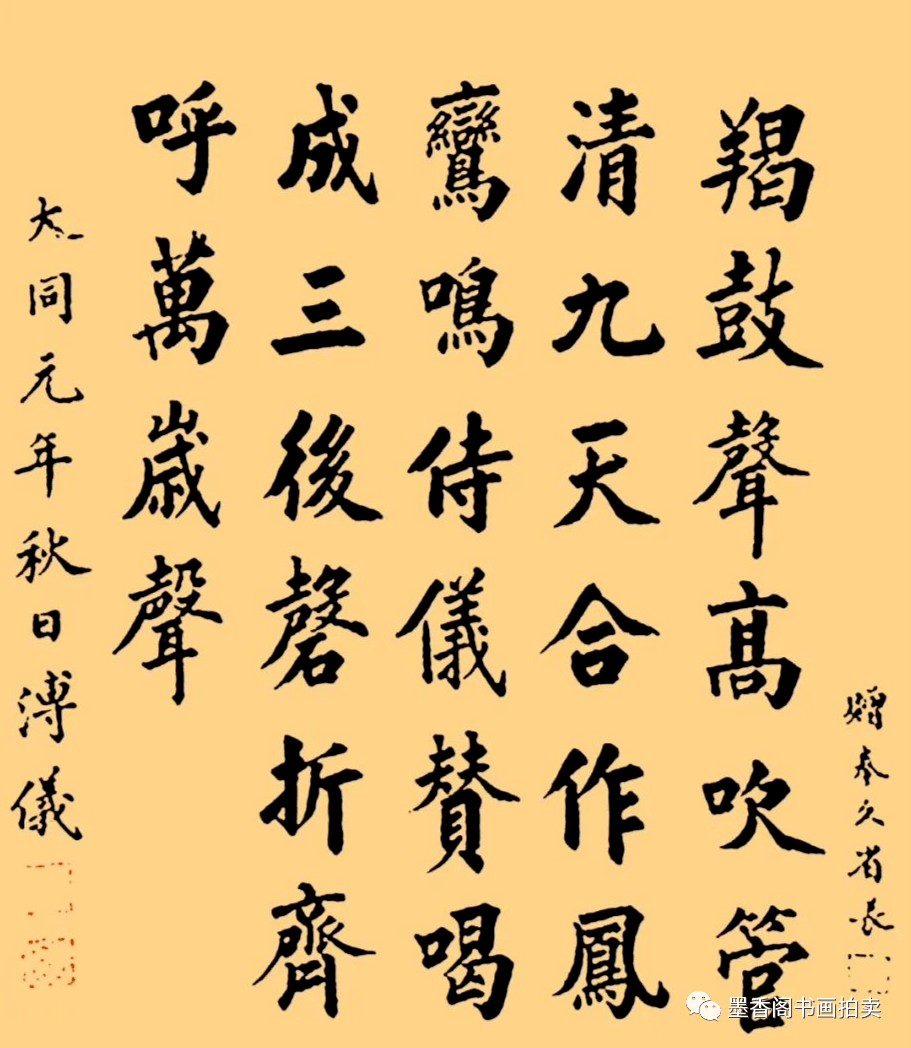 贈奉久省長
羯鼓聲髙吹管
清九天合作鳳
鸞鳴侍儀贊喝
成三後磬折齊
呼萬歲聲
大同元年秋日溥儀
墨香阁书画拍卖